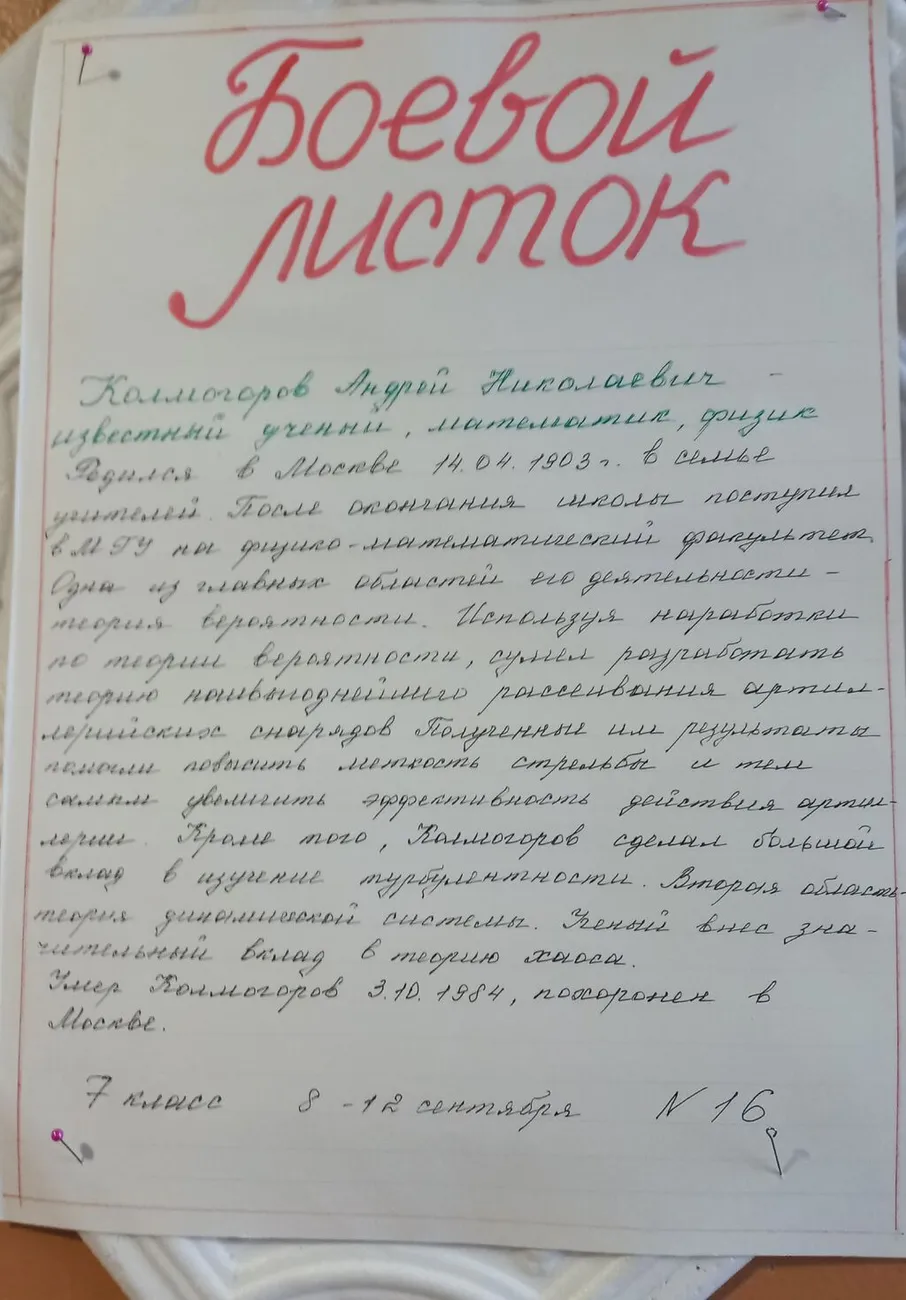 Боевой
листок
Колмогоров Андрей Николаевич -
известный ученый, математик, физик
Родился в Москве 14.04.1903г. в семье
учителей. После окончания школы поступил
в МГУ на физико-математический факультет.
Одна из главных областей его деятельности -
теория вероятности. Используя наработки
по теории вероятности, сумел разработать
теорию наивыгоднейшего рассеивания артил-
лерийских снарядов Полученные им результаты
помогли повысить меткость стрельбы и тем
самым увеличить эффективность действия артил-
лерии. Кроме того, Колмогоров сделал большой
вклад в изучение турбулентности. Вторая область-
теория динамической системы. Ученый внес зна-
чительный вклад в теорию хаоса.
Умер Колмогоров 3.10.1984, похоронен в
Москве.
7 класс 8-12 сентября N 16